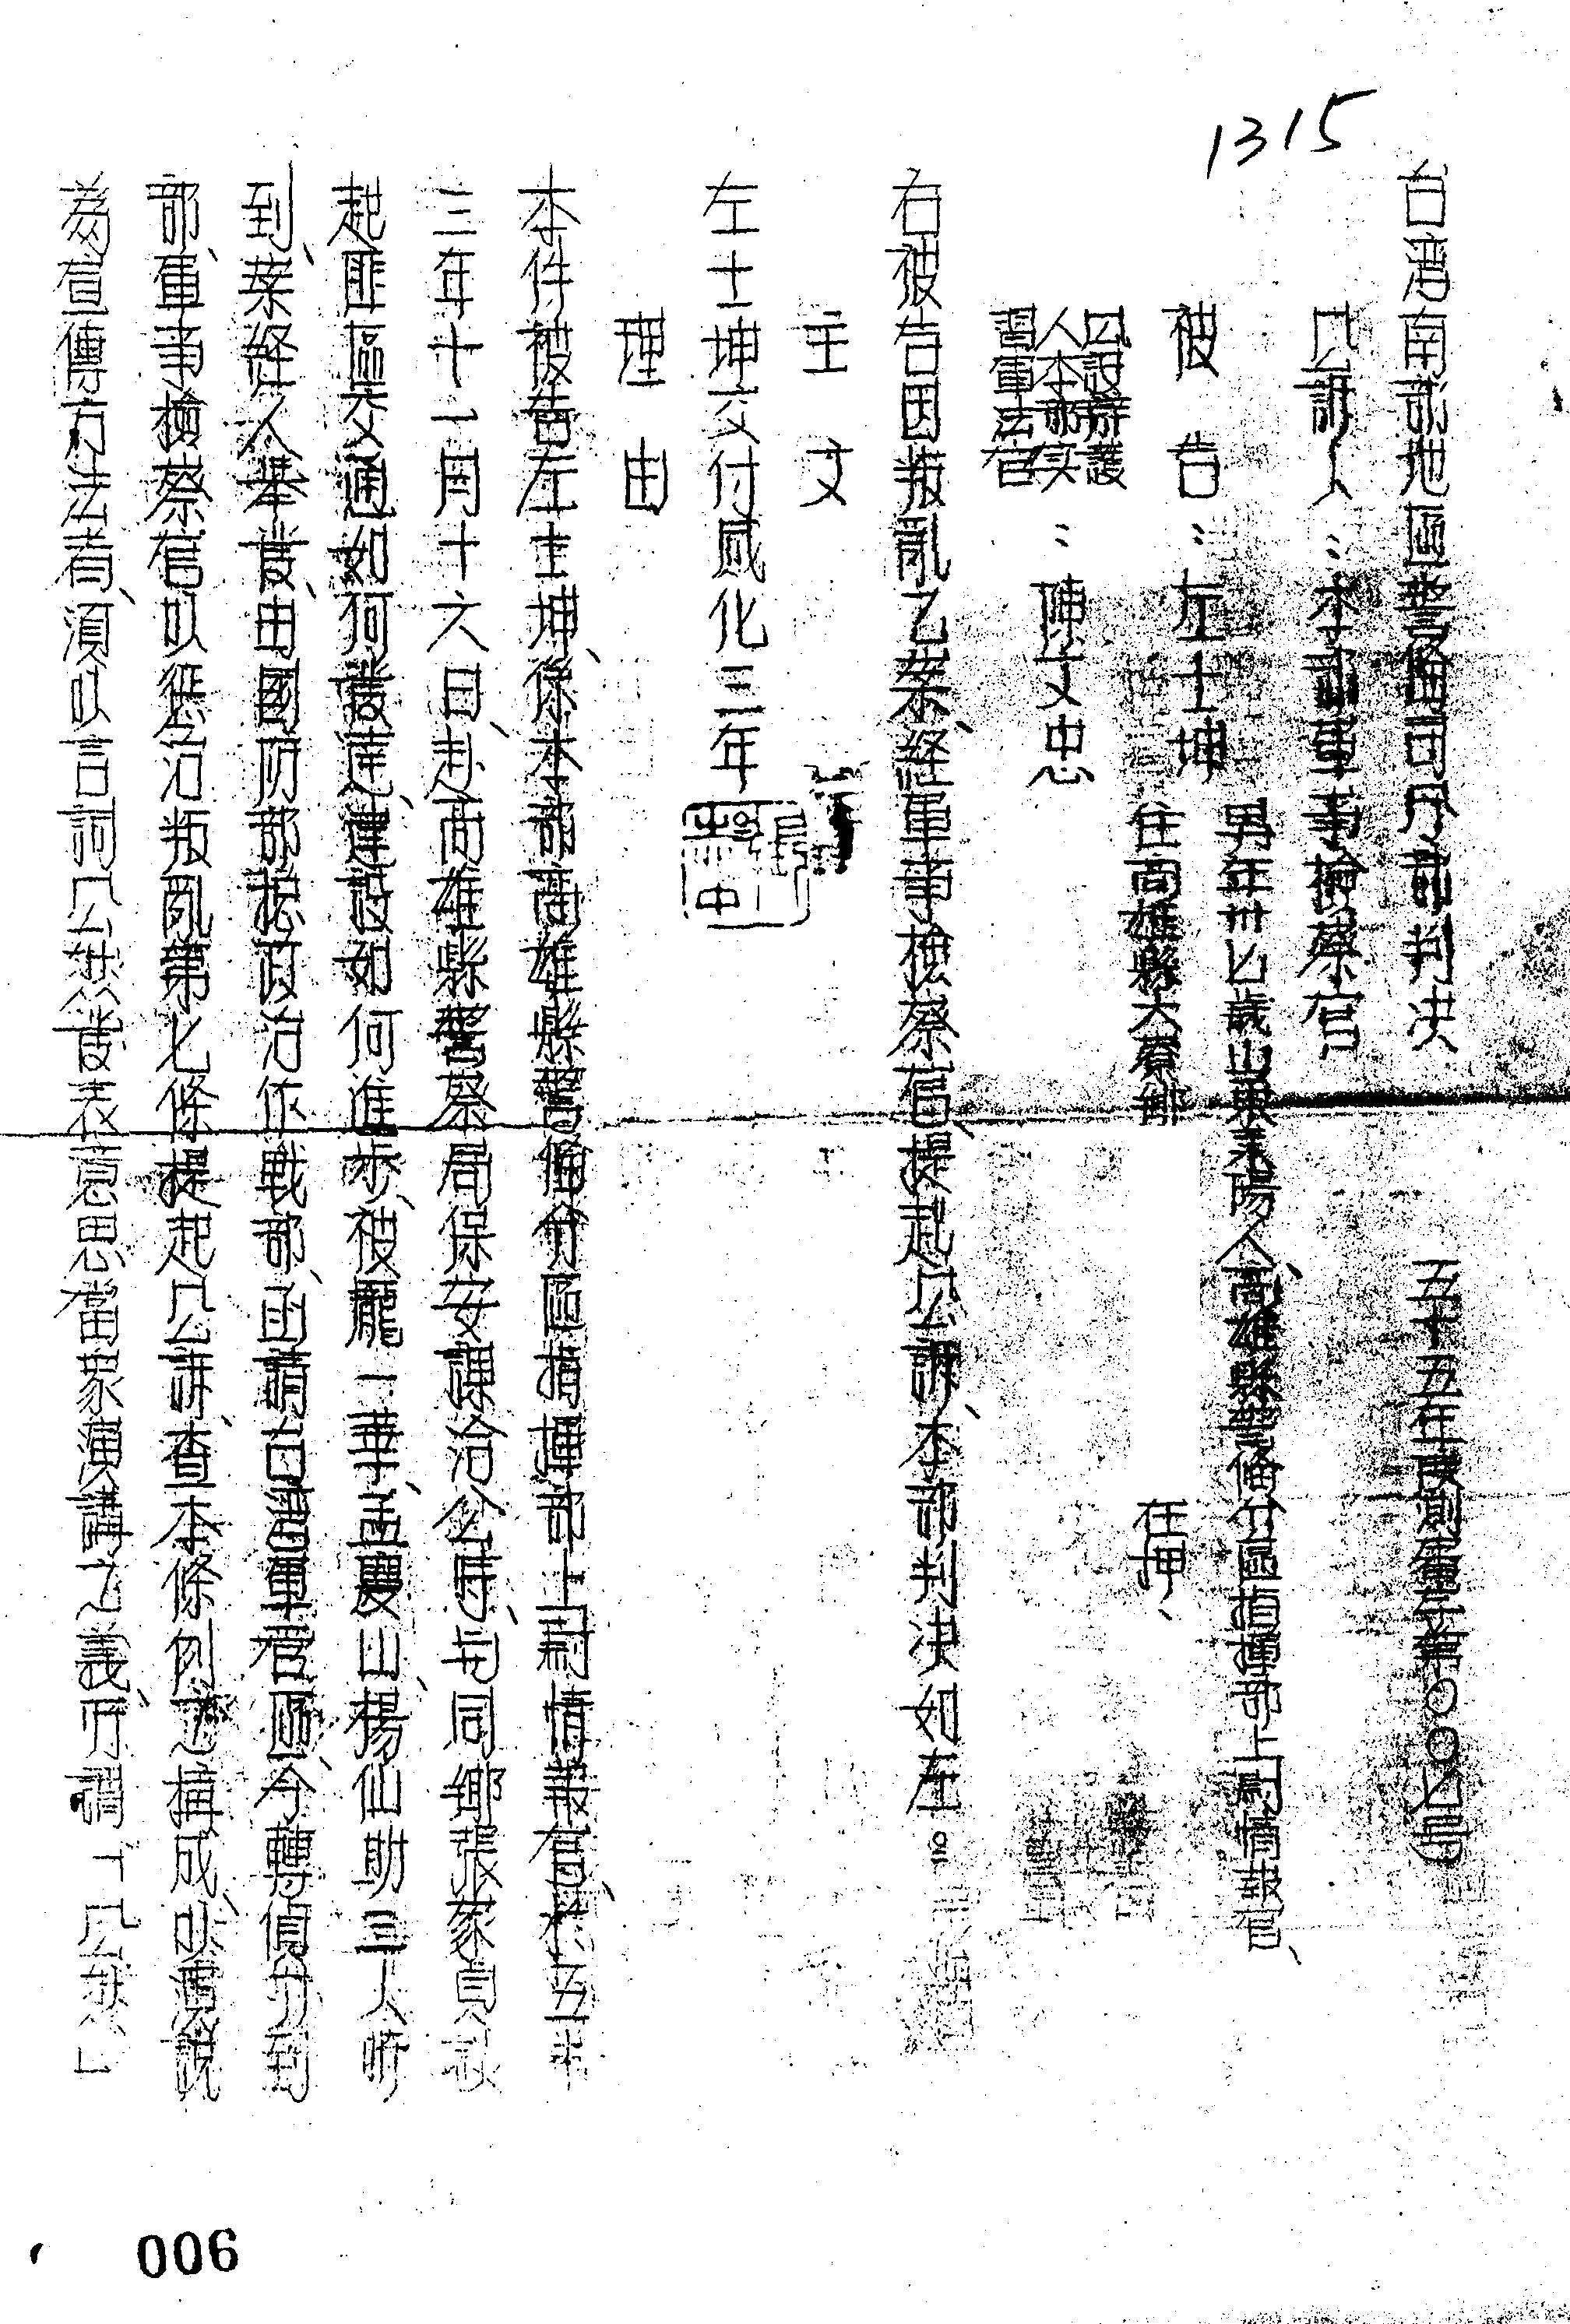 1315
台湾南部地區警備司令部判决
五十五年度判字第〇〇七号
公訴人：本部軍事檢察官
被告：左士坤
男年卅七歲山東萊陽人、高雄縣警備分區指揮部上尉情報官、
住高雄縣大寮鄉
在押、
公設辯護
人本部实
習軍法官
：陳文忠
右被告因叛亂乙案、経軍事檢察官、提起公訴、本部判决如左：
主文
左士坤交付感化三年
理由
本件被告左士坤、係本部高雄縣警備分區指揮部上尉情報官、於五十
三年十一月十六日、赴高雄縣警察局保安課洽公時、与同鄉張篆貞談
起匪區交通如何發達、建設如何進步、被龐一華、孟慶山、楊仙助三人听
到、案経人舉發、由國防部総政治作戰部、函請台灣軍管區、令轉偵办到
部、軍事檢察官以懲治叛亂第七條提起公訴、查本條例之構成、以演說
為宣傳方法者、須以言詞公然發表意思當眾演講之義、所謂「公然」
006